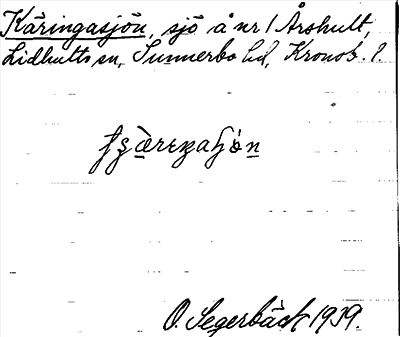 Käringasjön, sjö å nr 1 Årshult,
Lidhults sn, Sunnerbo hd, Kronob. l.
O. Segerbäck 1939.